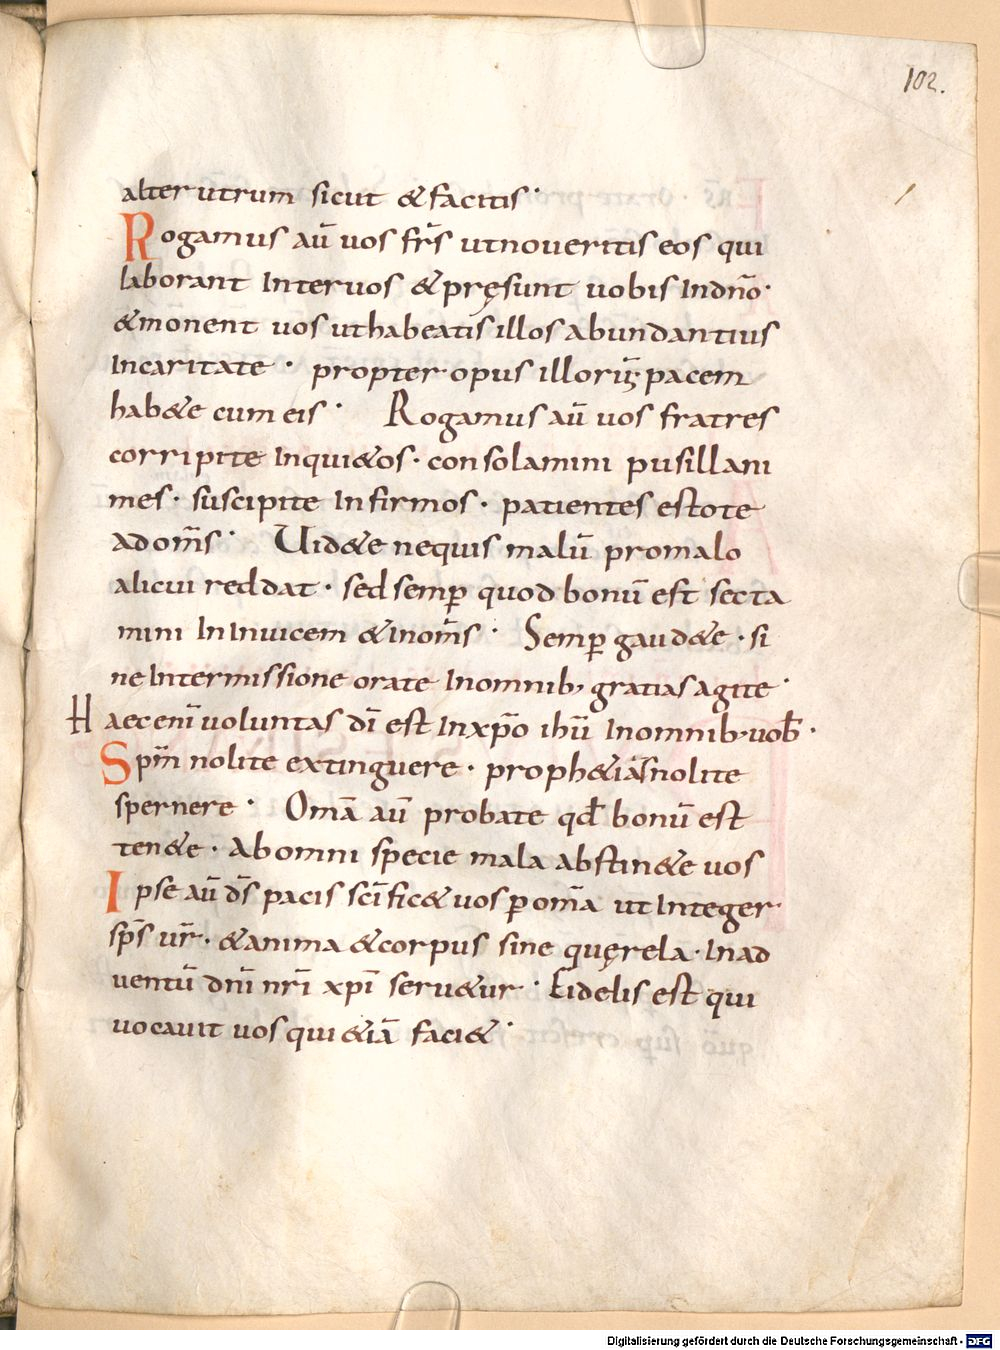 102.
alter utrum sicut & facitis·
Rogamus aū uos fr̄s ut noueritis eos qui
laborant Inter uos & pręsunt uobis In dn̄o·
& monent uos ut habeatis illos abundantius
In caritate · propter opus illorūpacem
hab&e cum eis · Rogamus aū uos fratres
corripite Inqui&os · consolamini pusillani
mes · suscipite Infirmos · patientes estote
ad om̄s · Uid&e nequis malū pro malo
alicui reddat · sed semꝑ quod bonū est secta
mini In Inuicem & in om̄s · Semꝑ gaud&e · si
ne Intermissione orate In omnib; gratias agite ·
Haec eni̅ uoluntas dī est In xp̄o ihū In omnib; uob̄ ·
Spm̄ nolite extinguere · proph&iās nolite
spernere · Om̄a aū probate qđ bonū est
ten&e · Ab omni specie mala abstin&e uos
Ipse aū ds̄ pacis sc̄ific& uos ꝑ om̄a ut Integer·
sp̄s ur̄ · & anima & corpus sine quęrela · In ad
uentū dn̄i nr̄i xp̄i seru&ur · Fidelis est qui
uocauit uos qui &iā faci& ·
Digitalisierung gefördert durch die Deutsche Forschungsgemeinschaft - DFG